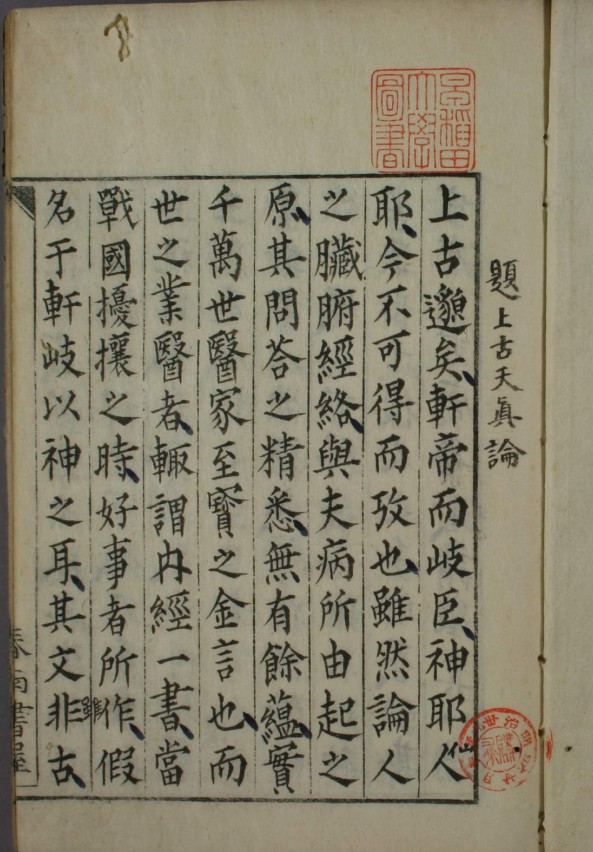 早稲田
大學
圖書
題上古天眞論
上古邈矣、軒帝而岐臣、神耶人
仙
耶、今不可得而攷也、雖然論人
之臟腑經絡、與夫病所由起之
原、其問荅之精悉、無有餘蘊、實
千萬世醫家至寳之金言也、而
世之業醫者、輙謂內經一書、當
戰國擾攘之時、好事者所作、假
雖
名于軒岐以神之耳、其文非古、
書屋